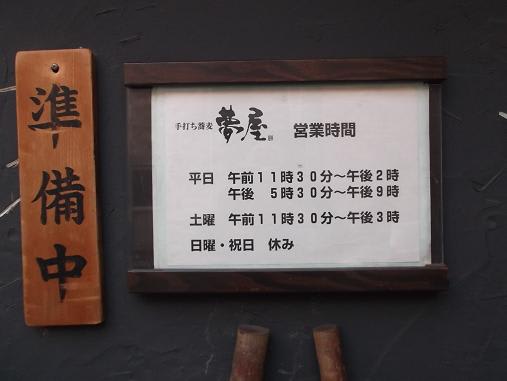 準備中
手打ち蕎麦 夢屋 営業時間
平日 午前11時30分~午後2時
午後 5時30分~午後9時
土曜 午前11時30分~午後3時
日曜・祝日 休み